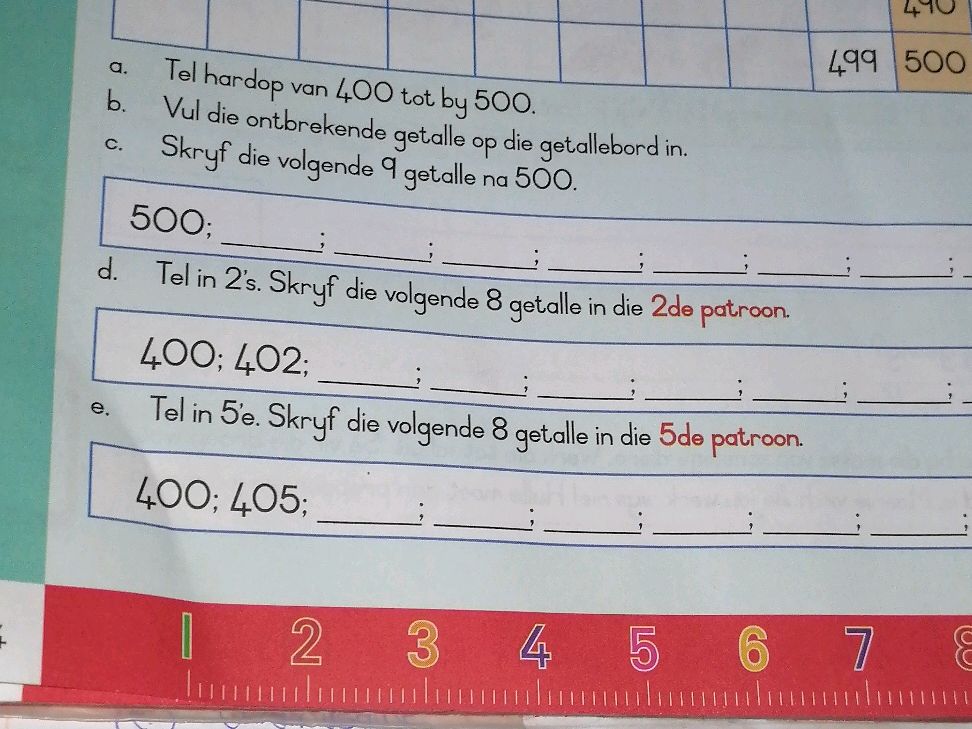 490
499 500
a. Tel hardop van 400 tot by 500.
b. Vul die ontbrekende getalle op die getallebord in.
c. Skryf die volgende 9 getalle na 500.
500; ______; ______; ______; ______; ______; ______; ______;
d. Tel in 2's. Skryf die volgende 8 getalle in die 2de patroon.
400; 402; ______; ______; ______; ______; ______; ______;
e. Tel in 5'e. Skryf die volgende 8 getalle in die 5de patroon.
400; 405; ______; ______; ______; ______; ______; ______;
1 2 3 4 5 6 7 8